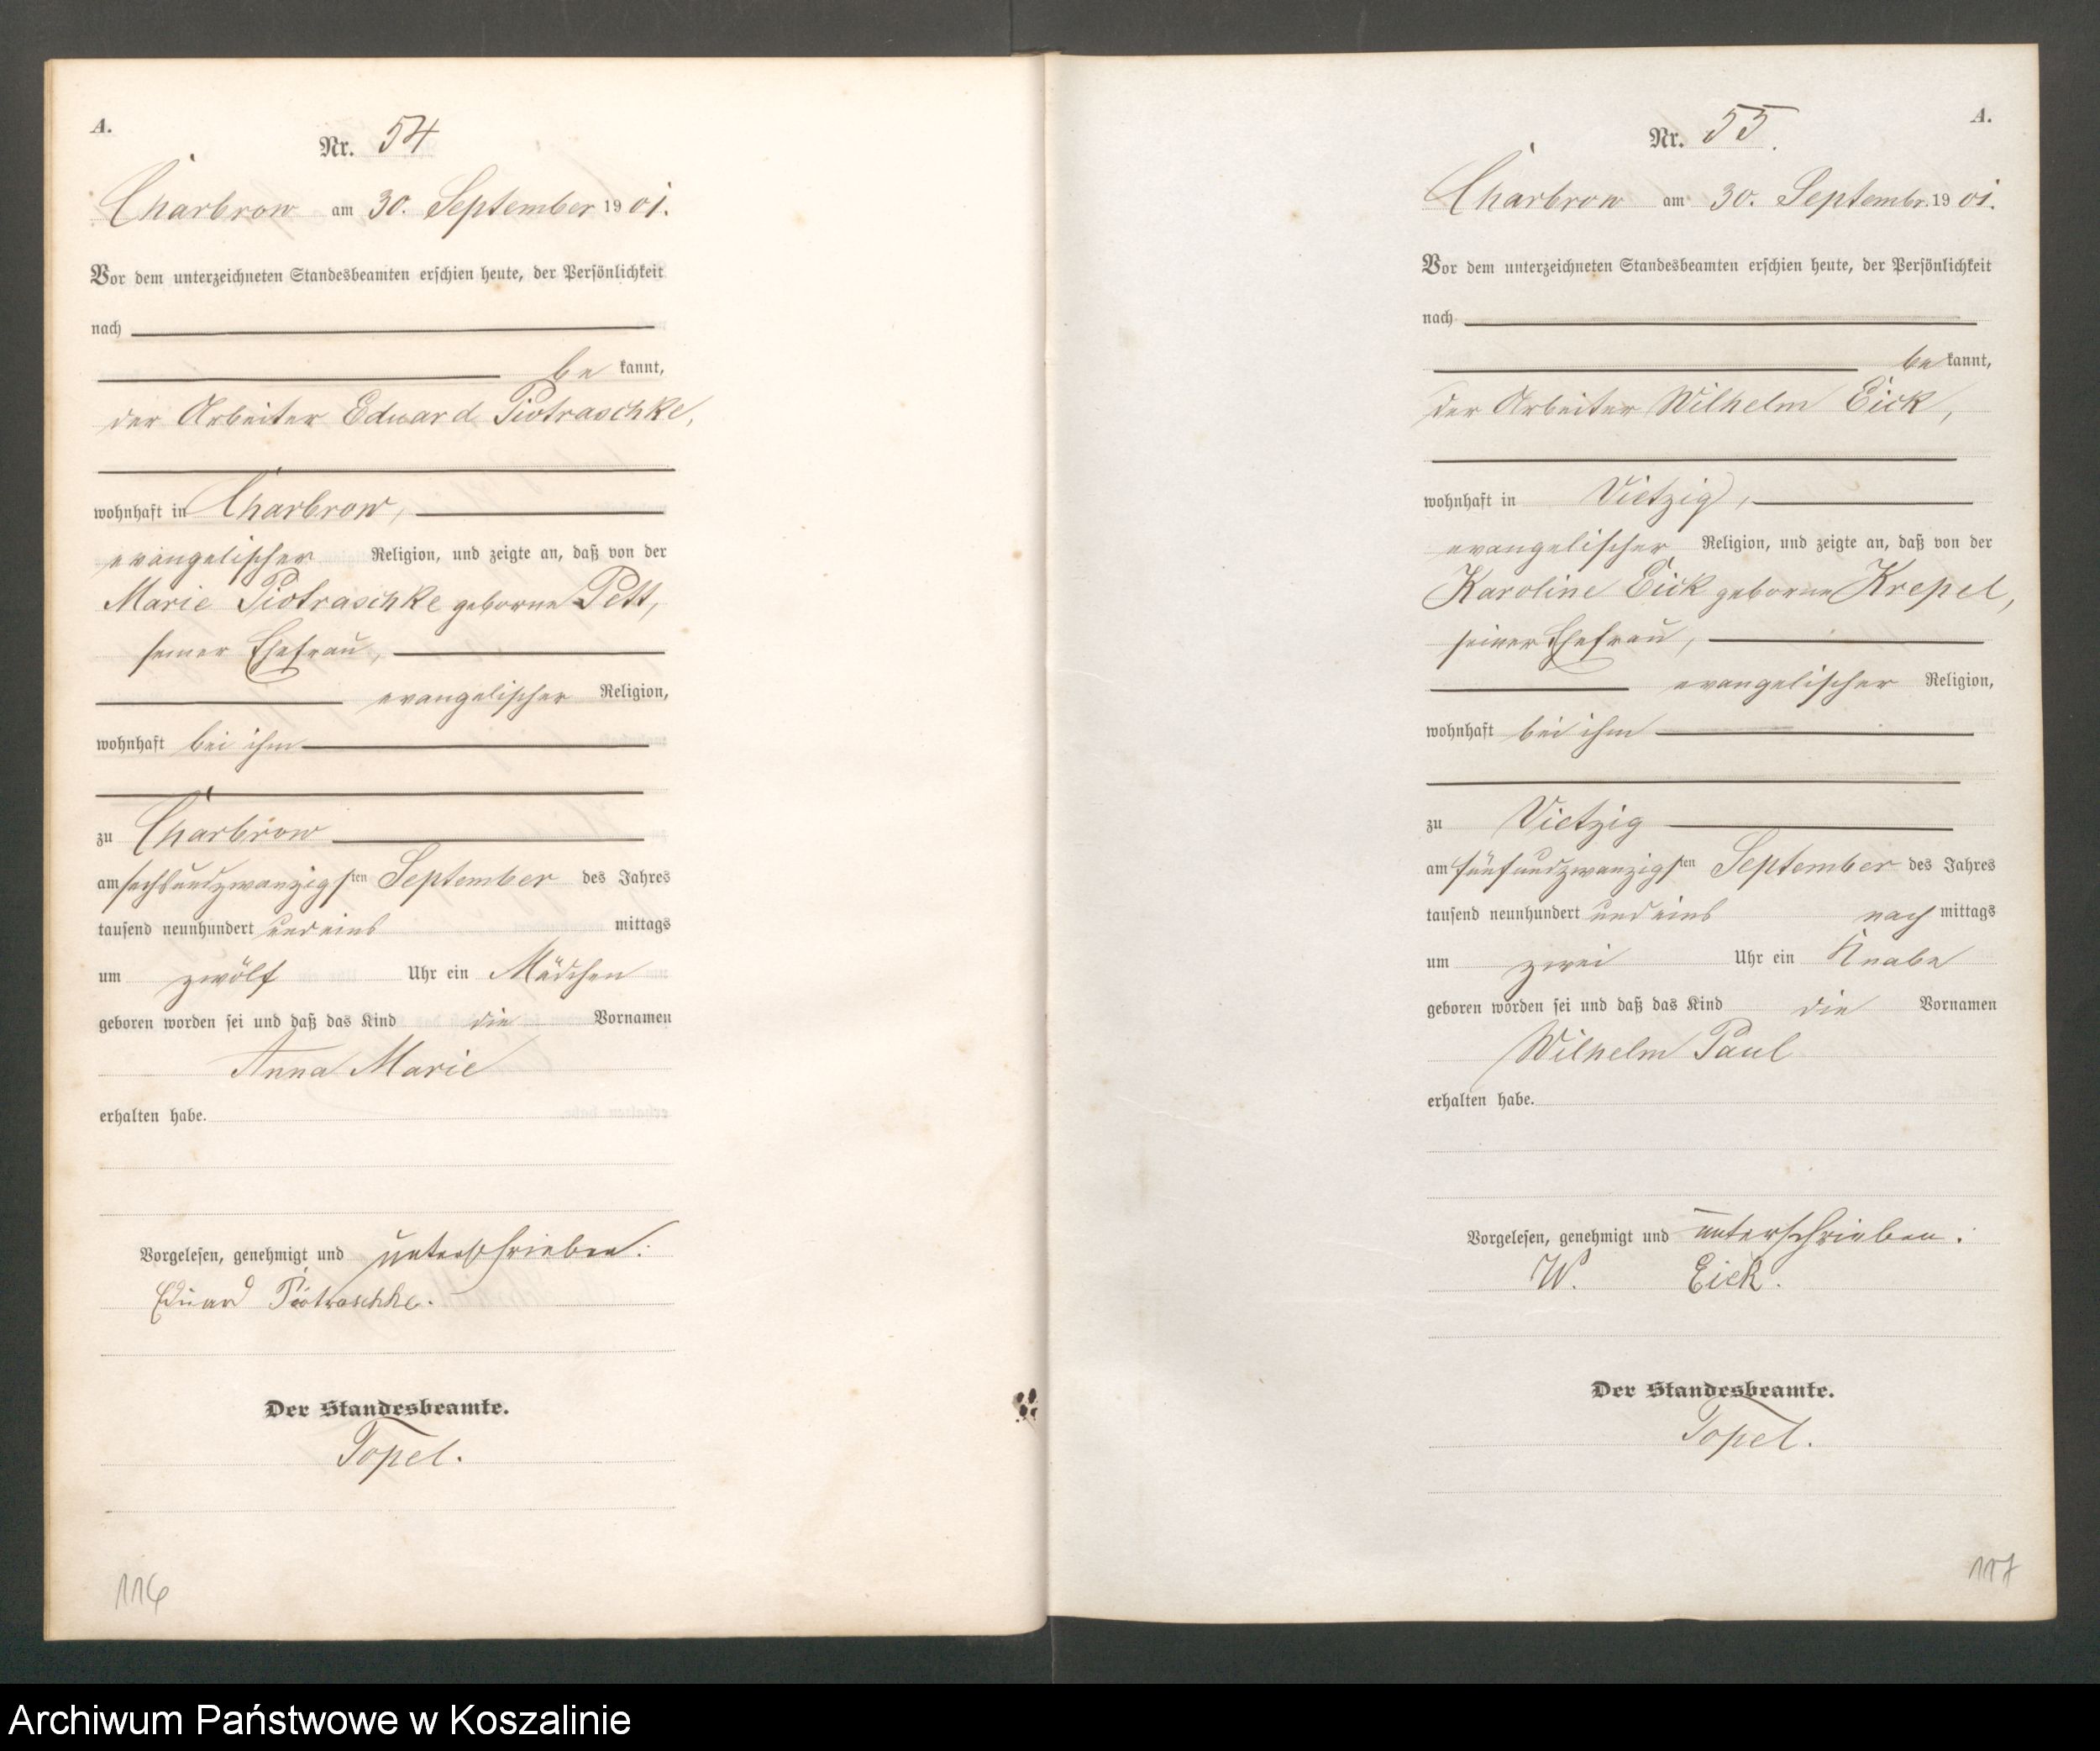 A.
Nr. 54
Charbrow am 30. September 1901.
Vor dem unterzeichneten Standesbeamten erschien heute, der Persönlichkeit
nach
be kannt,
der Arbeiter Eduard Piotraschke,
wohnhaft in Charbrow,
evangelischer Religion, und zeigte an, daß von der
Marie Piotraschke geborne Pett,
seiner Ehefrau,
evangelischer Religion,
wohnhaft bei ihm
zu Charbrow
am sechsundzwanzigsten September des Jahres
tausend neunhundert und eins mittags
um zwölf Uhr ein Mädchen
geboren worden sei und daß das Kind die Vornamen
Anna Marie
erhalten habe.
Vorgelesen, genehmigt und unterschrieben:
Eduard Piotraschke.
Der Standesbeamte.
Topel.
116
A.
Nr. 55.
Charbrow am 30. Septembr. 1901.
Vor dem unterzeichneten Standesbeamten erschien heute, der Persönlichkeit
nach
be kannt,
der Arbeiter Wilhelm Eick,
wohnhaft in Vietzig,
evangelischer Religion, und zeigte an, daß von der
Karoline Eick geborne Krepel,
seiner Ehefrau,
evangelischer Religion,
wohnhaft bei ihm
zu Vietzig
am fünfundzwanzigsten September des Jahres
tausend neunhundert und eins nach mittags
um zwei Uhr ein Knabe
geboren worden sei und daß das Kind die Vornamen
Wilhelm Paul
erhalten habe.
Vorgelesen, genehmigt und unterschrieben:
W. Eick.
Der Standesbeamte.
Topel.
117
Archiwum Państwowe w Koszalinie